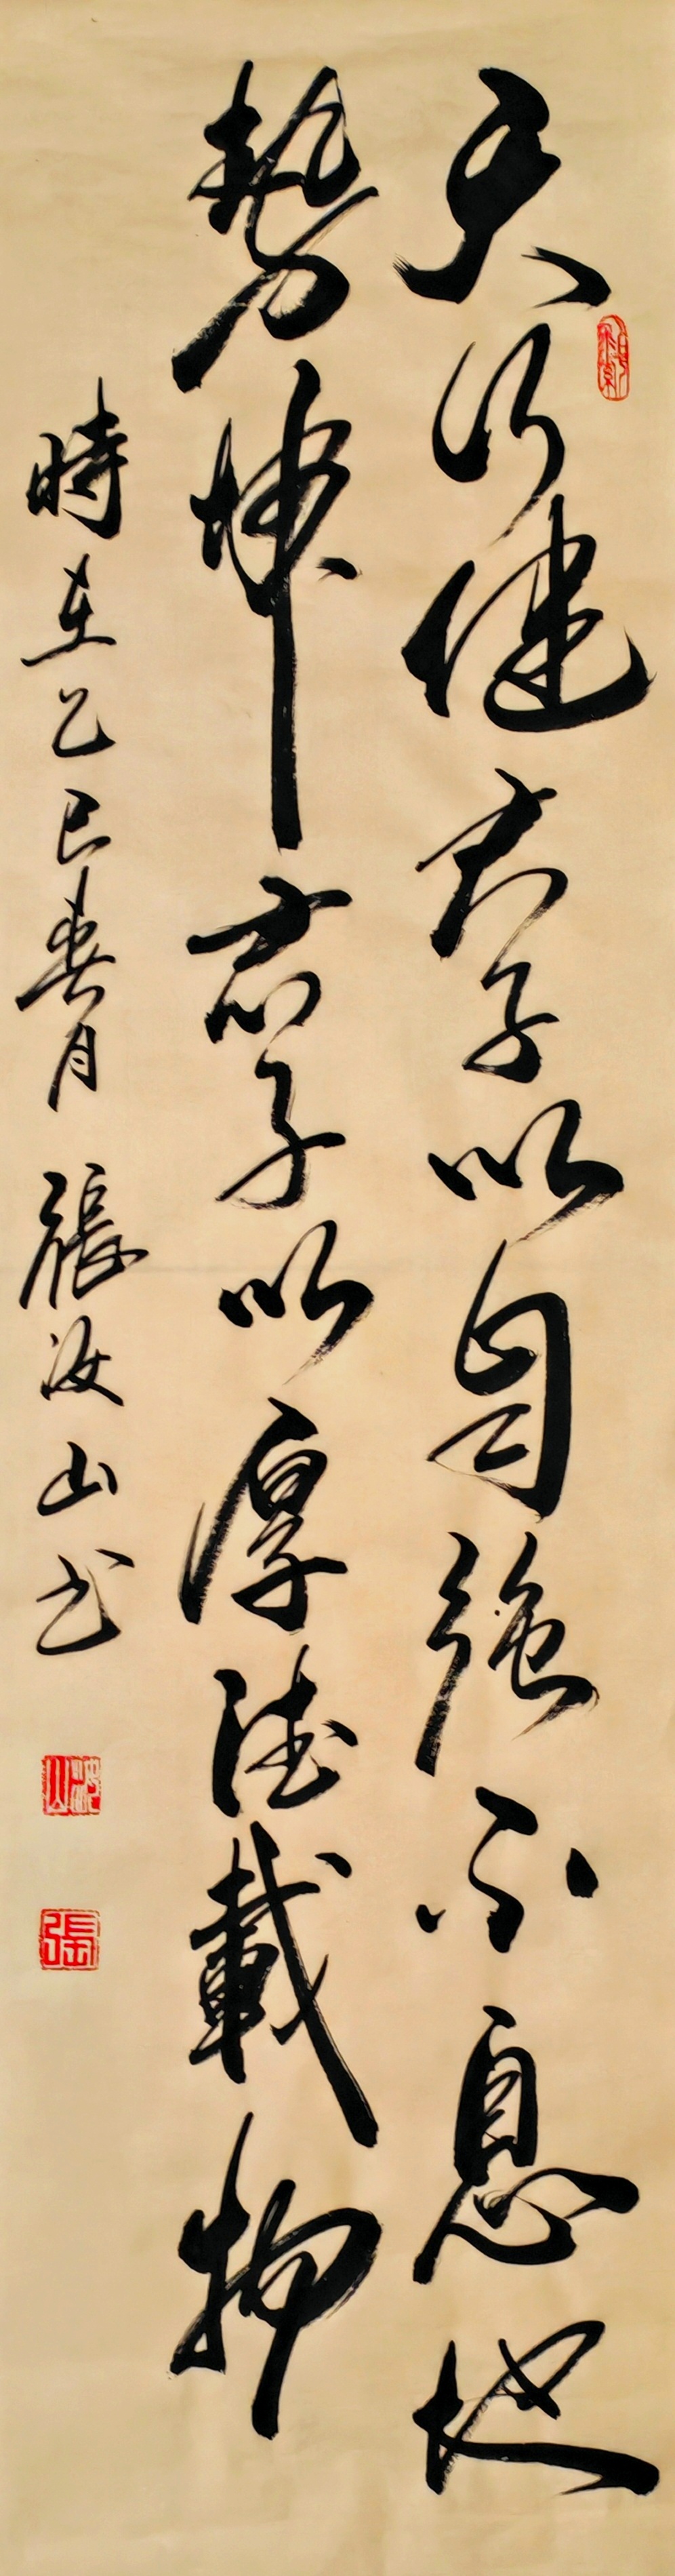 天行健君子以自強不息地
勢坤君子以厚德載物
時在乙巳春月 張汝山书
汝山
張